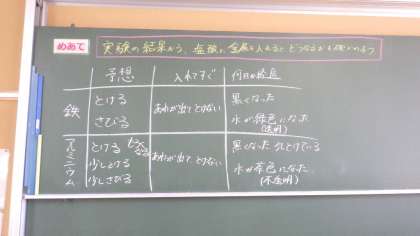 めあて 実験の結果から、塩酸に金属を入れるとどうなるか
予想 入れてすぐ 何日か経過
鉄 とける さびる あわが出て とけない 黒くなった 水が緑色になった (透明)
アルミニウム とける 少しとける 少しさびる あわが出て とけない 黒くなった 少しとけている 水が茶色になった (不透明)